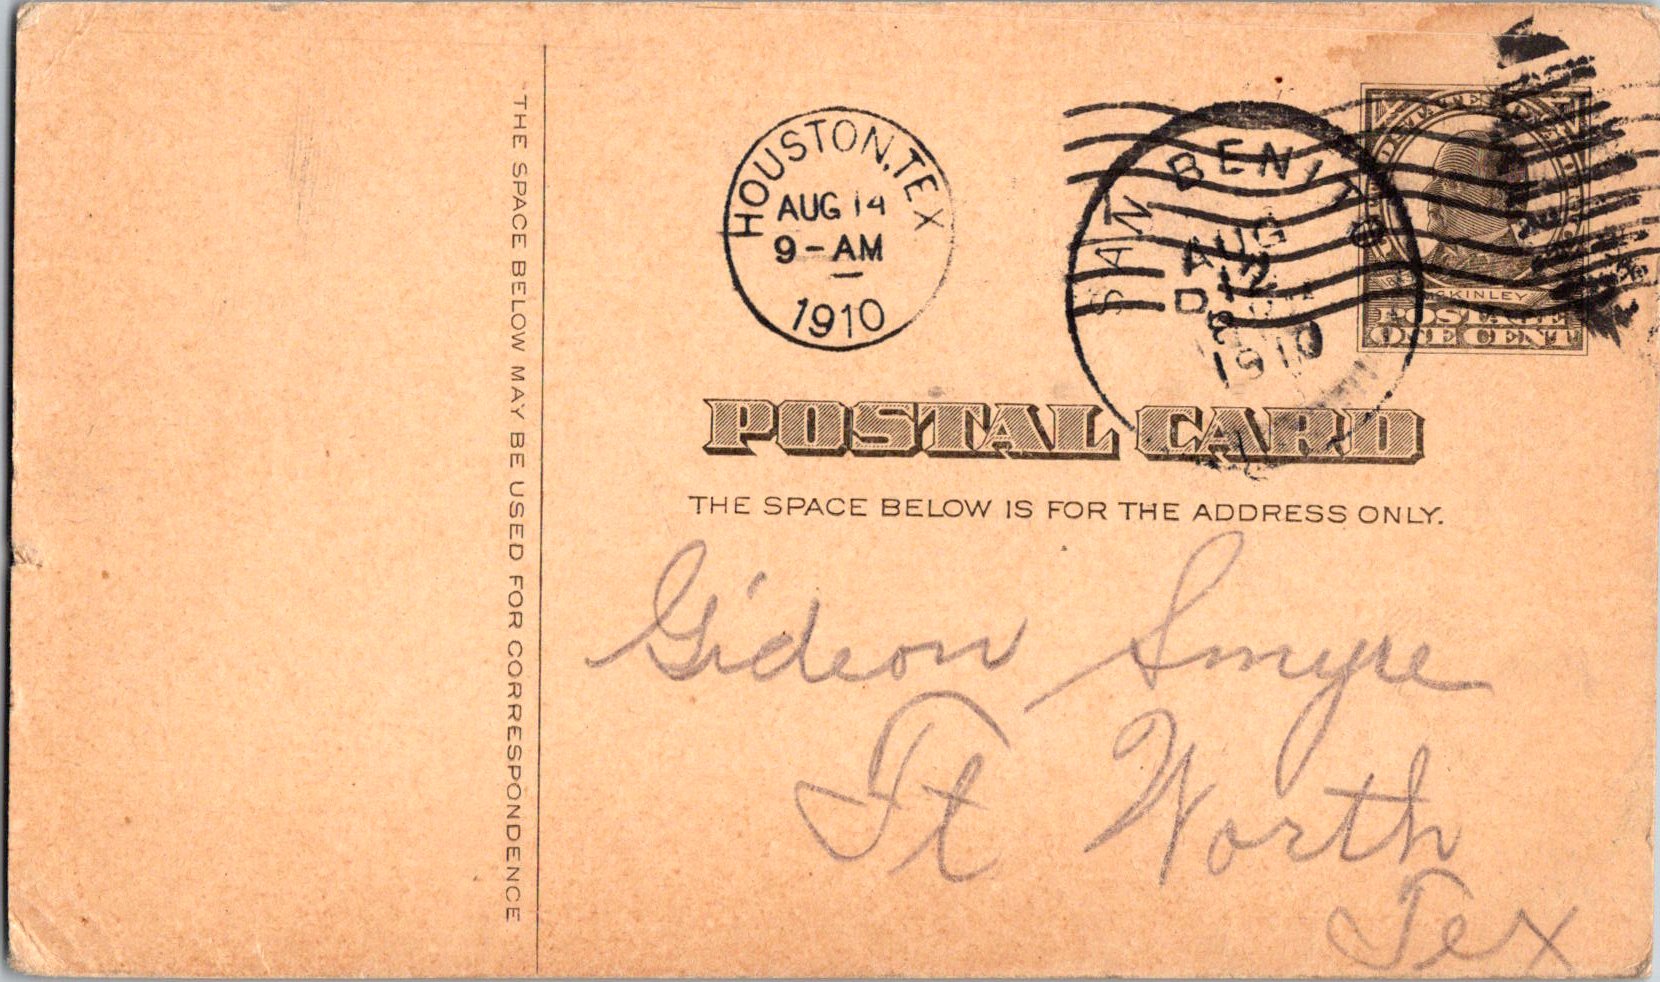 THE SPACE BELOW MAY BE USED FOR CORRESPONDENCE
HOUSTON, TEX
AUG 14
9-AM
1910
SAN BENITO
AUG
12
D
1910
McKINLEY
POSTAGE
ONE CENT
POSTAL CARD
THE SPACE BELOW IS FOR THE ADDRESS ONLY.
Gideon Smyre
Ft Worth
Tex